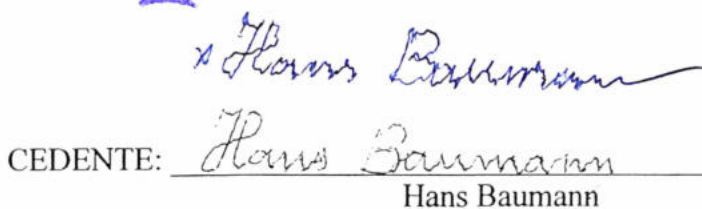 x Hans Baumann
CEDENTE: Hans Baumann
Hans Baumann